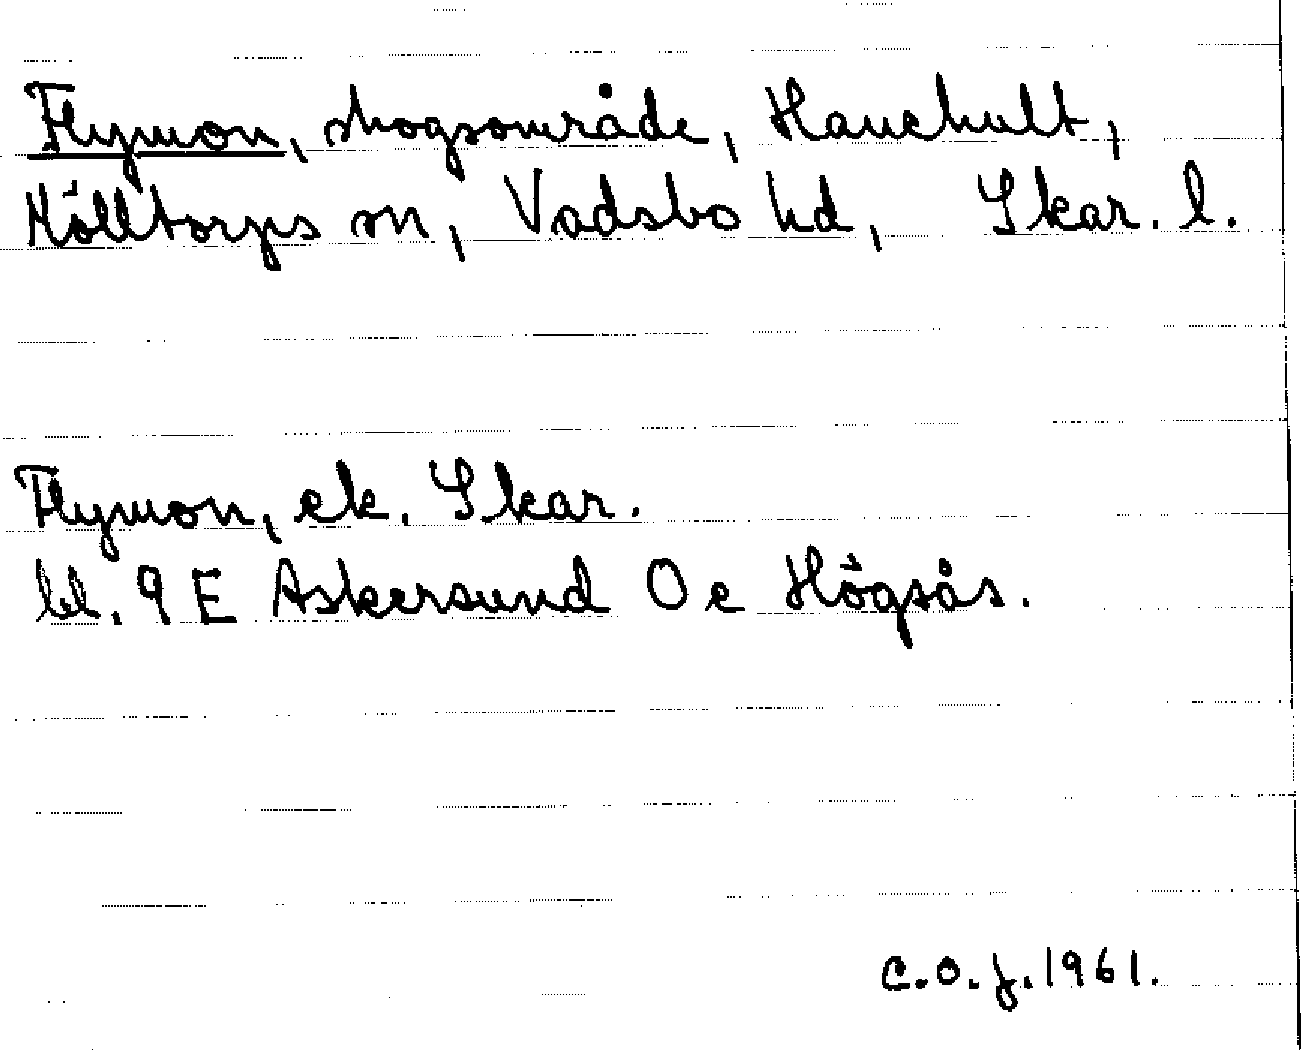 Flymon, skogsområde, Hanehult,
Mölltorps sn, Vadsbo hd, Skar. l.
Flymon, ek. Skar.
bl. 9 E Askersund 0 e Högsås.
C.O.J. 1961.